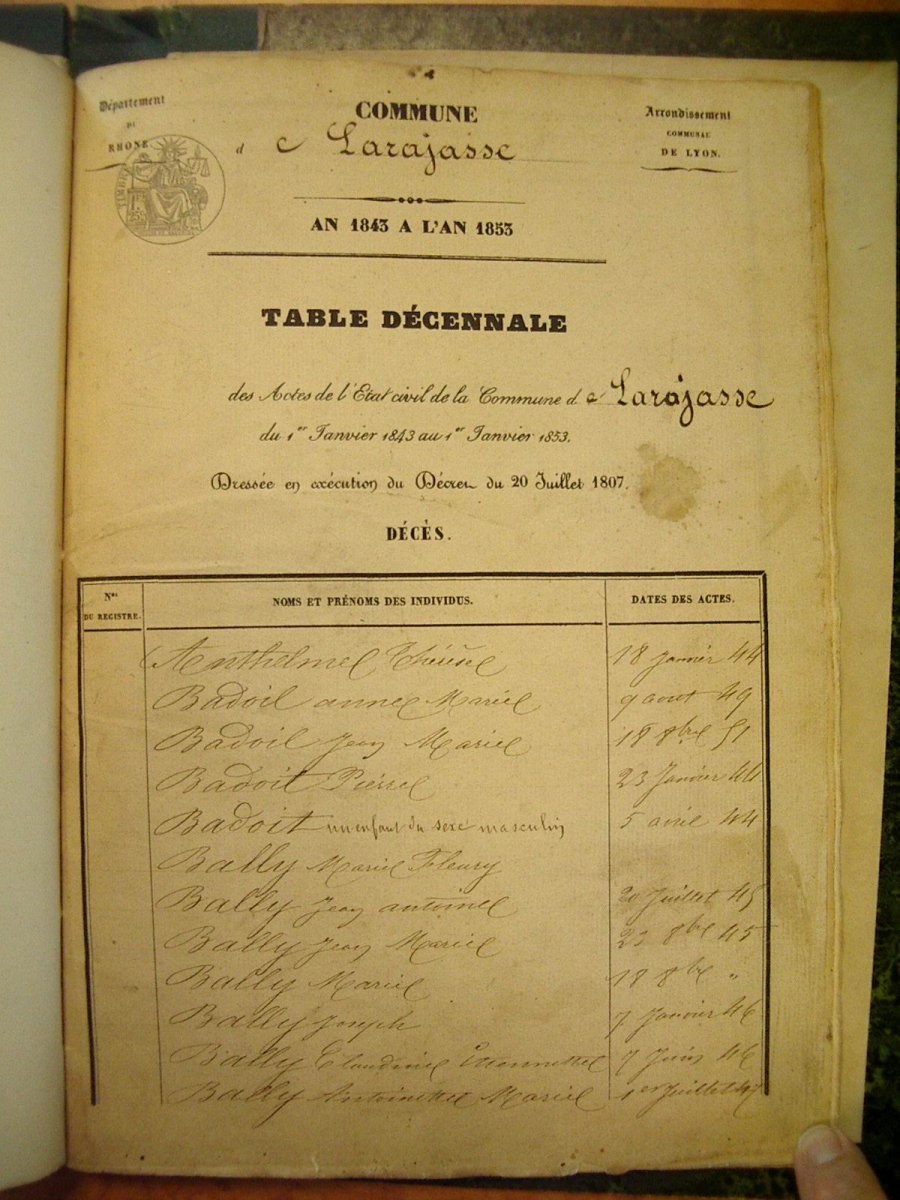 Département
DU
RHONE.
COMMUNE
de Larajasse
Arrondissement
COMMUNAL
DE LYON.
TIMBRE
AN 1843 A L'AN 1853
TABLE DÉCENNALE
des Actes de l'Etat civil de la Commune de Larajasse
du 1er Janvier 1843 au 1er Janvier 1853.
Dressée en exécution du Décret du 20 Juillet 1807.
DÉCÈS.
Nos DU REGISTRE. NOMS ET PRÉNOMS DES INDIVIDUS. DATES DES ACTES.
Anthelme Thérèse 18 Janvier 44
Badoil anne Marie 9 aout 49
Badoil Jean Marie 18 8bre 51
Badoit Pierre 23 Janvier 44
Badoit un enfant du sexe masculin 5 avril 44
Bally Marie Fleury
Bally Jean antoine 20 Juillet 45
Bally Jean Marie 23 8bre 45
Bally Marie 18 8bre "
Bally Joseph 7 Janvier 46
Bally Claudine Etiennette 7 Juin 46
Bally Antoinette Marie 1er Juillet 47